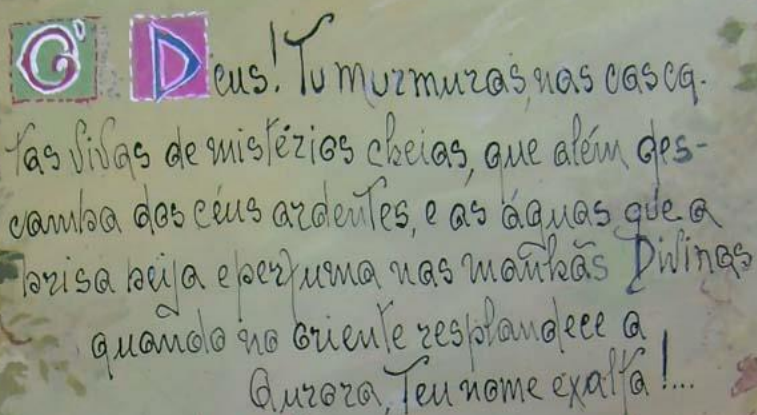 O' Deus! Tu murmuras, nas casca-
tas vivas de mistérios cheias, que além des-
camba dos céus ardentes, e as águas que a
brisa beija e perfuma nas manhãs Divinas
quando no oriente resplandece a
Aurora, Teu nome exalta!...